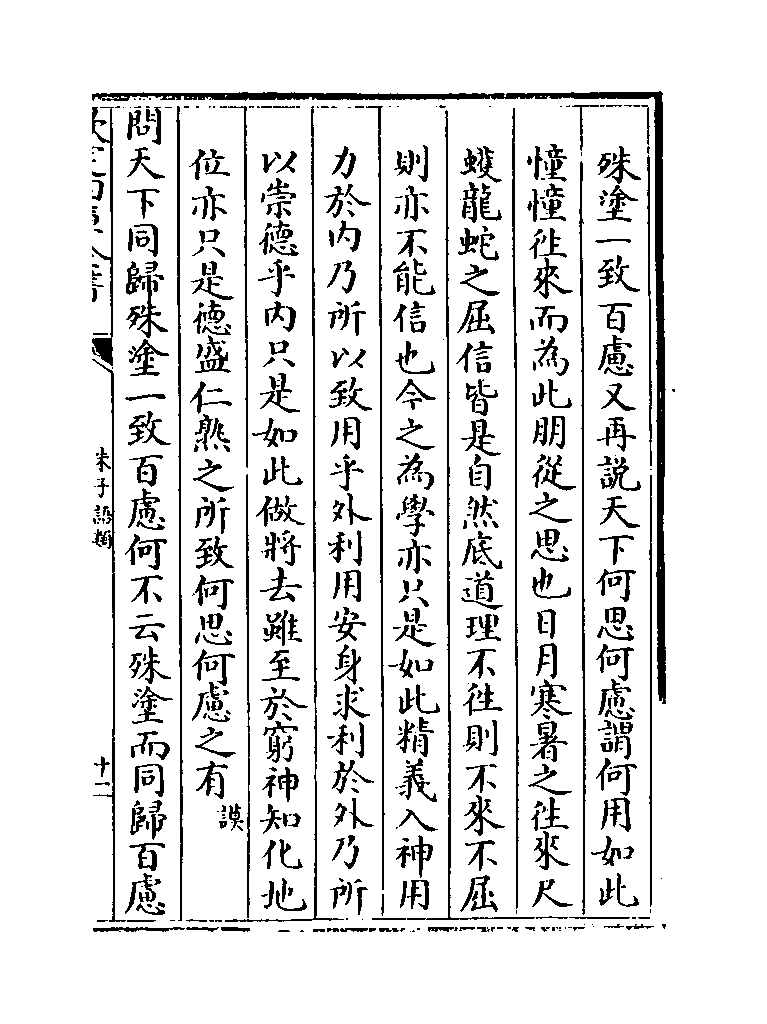 殊塗一致百慮又再説天下何思何慮謂何用如此
憧憧徃來而為此朋從之思也日月寒暑之徃來尺
蠖龍蛇之屈信皆是自然底道理不徃則不來不屈
則亦不能信也今之為學亦只是如此精義入神用
力於内乃所以致用乎外利用安身求利於外乃所
以崇德乎内只是如此做將去雖至於窮神知化地
位亦只是德盛仁熟之所致何思何慮之有謨
問天下同歸殊塗一致百慮何不云殊塗而同歸百慮
欽定四庫全書
朱子語類
十二